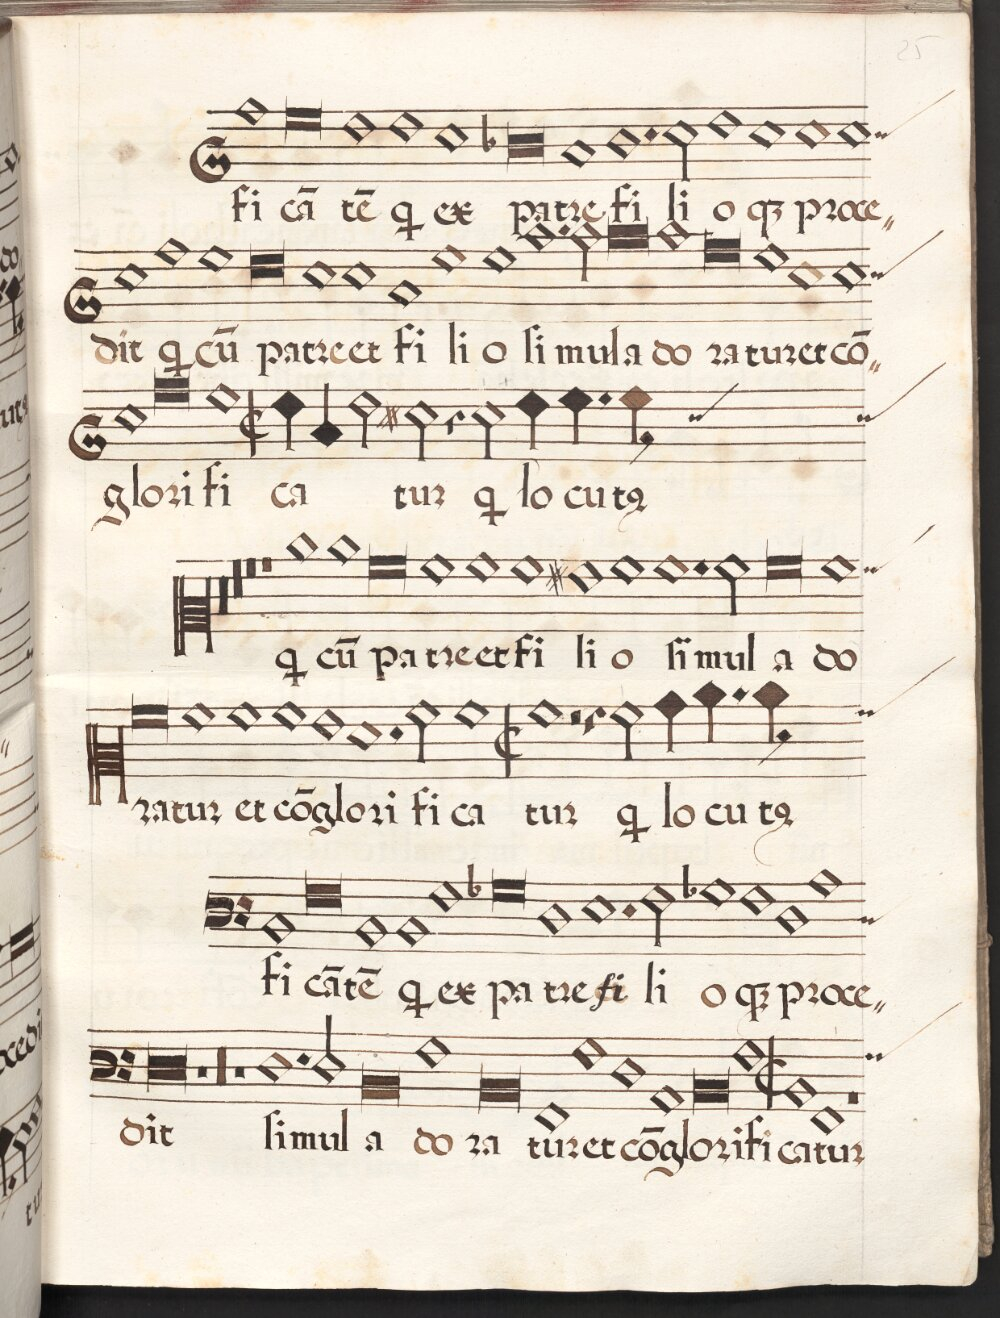 25
fi cā tē q̄ ex patre fi li o qꝫ proce„
dit q̄ cū patreet fi li o simula do raturetcō„
glorifi ca tur q̄ lo cutꝰ
q̄ cū patreetfi li o simul a do
ratur et cōglori fi ca tur q̄ lo cu tꝰ
fi cātē q̄ ex patrefi li o qꝫ proce„
dit simul a do ra turet cōglorificatur